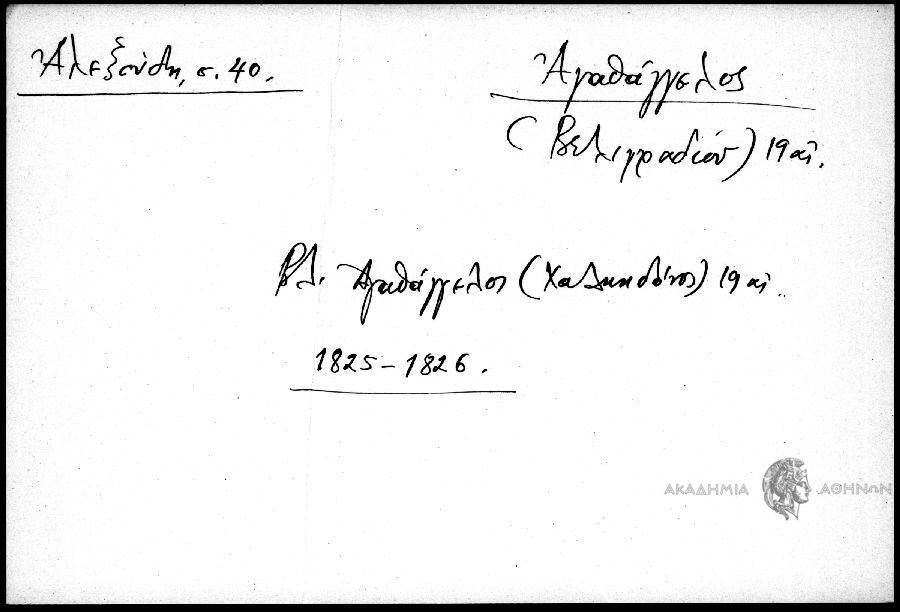 Ἀλεξούδη, σ. 40.
Ἀγαθάγγελος
(Βελιγραδίου) 19 αἰ.
Βλ. Ἀγαθάγγελος (Χαλκηδόνος) 19 αἰ.
1825 – 1826.
ΑΚΑΔΗΜΙΑ ΑΘΗΝΩΝ